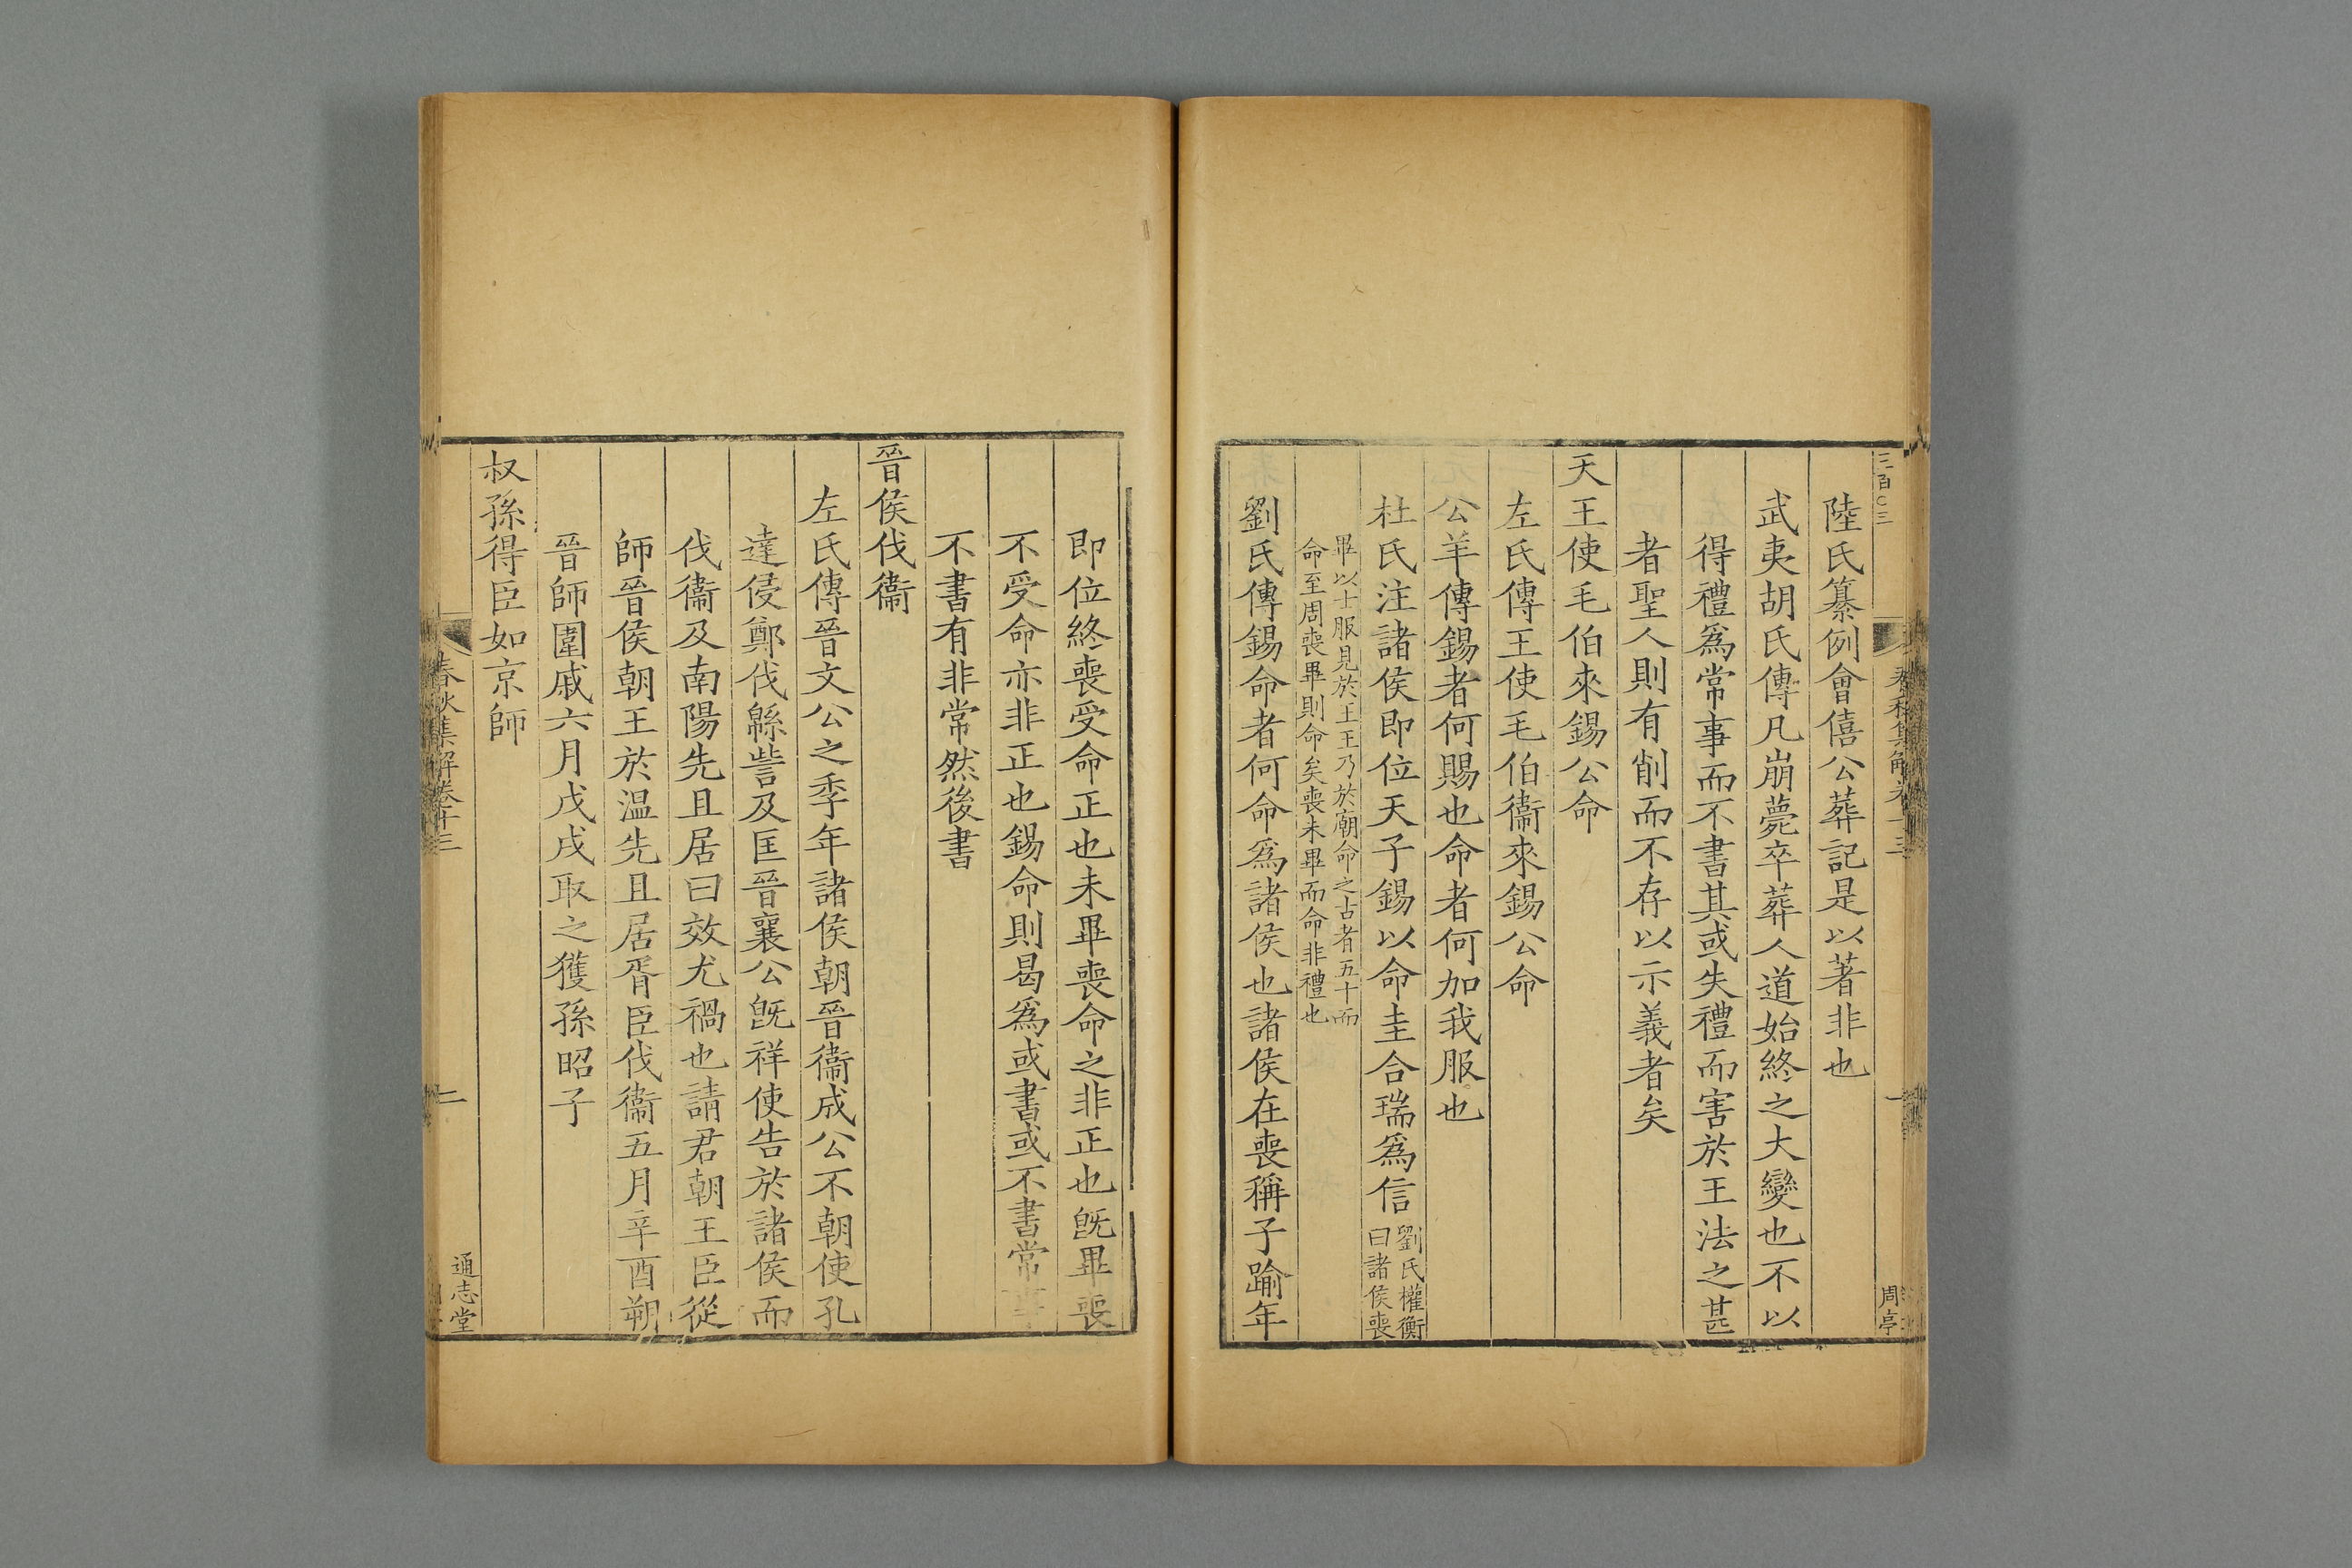 三百〇三
春秋集解卷十三
一
周亭
陸氏纂例會僖公葬記是以著非也
武夷胡氏傳凡崩薨卒葬人道始終之大變也不以
得禮爲常事而不書其或失禮而害於王法之甚
者聖人則有削而不存以示義者矣
天王使毛伯來錫公命
左氏傳王使毛伯衞來錫公命
公羊傳錫者何賜也命者何加我服也
杜氏注諸侯即位天子錫以命圭合瑞爲信劉氏權衡
曰諸侯喪
畢以士服見於王王乃於廟命之古者五十而
命至周喪畢則命矣喪未畢而命非禮也
劉氏傳錫命者何命爲諸侯也諸侯在喪稱子踰年
即位終喪受命正也未畢喪命之非正也旣畢喪
不受命亦非正也錫命則曷爲或書或不書常事
不書有非常然後書
晉侯伐衞
左氏傳晉文公之季年諸侯朝晉衞成公不朝使孔
達侵鄭伐緜訾及匡晉襄公旣祥使告於諸侯而
伐衞及南陽先且居曰效尤禍也請君朝王臣從
師晉侯朝王於温先且居胥臣伐衞五月辛酉朔
晉師圍戚六月戊戌取之獲孫昭子
叔孫得臣如京師
春秋集解卷十三
二
通志堂